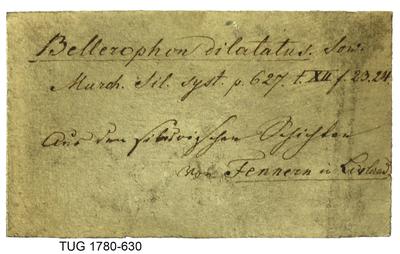 Bellerophon dilatatus. Sow.
Murch. Sil. syst. p. 627. t. XII f. 23.24
Aus den silurischen Schichten
von Fennern in Livland
TUG 1780-630